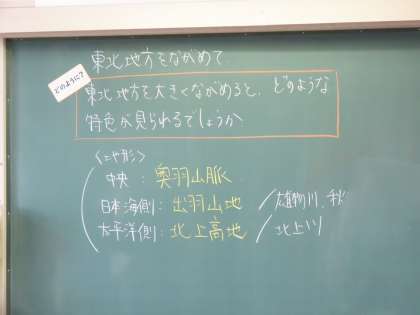 東北地方をながめて
どのように?
東北地方を大きくながめると、どのような
特色が見られるでしょうか
中央:奥羽山脈
日本海側:出羽山地 /雄物川、秋
太平洋側:北上高地 /北上川